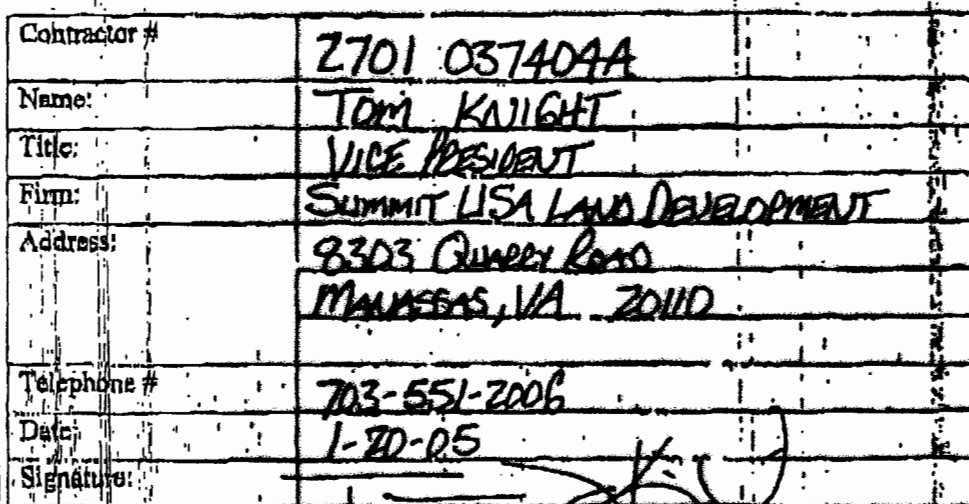 Contractor # 2701 037404A
Name: TOM KNIGHT
Title: VICE PRESIDENT
Firm: SUMMIT USA LAND DEVELOPMENT
Address: 8303 QUARRY ROAD
MANASSAS, VA 20110
Telephone # 703-551-2006
Date: 1-20-05
Signature: